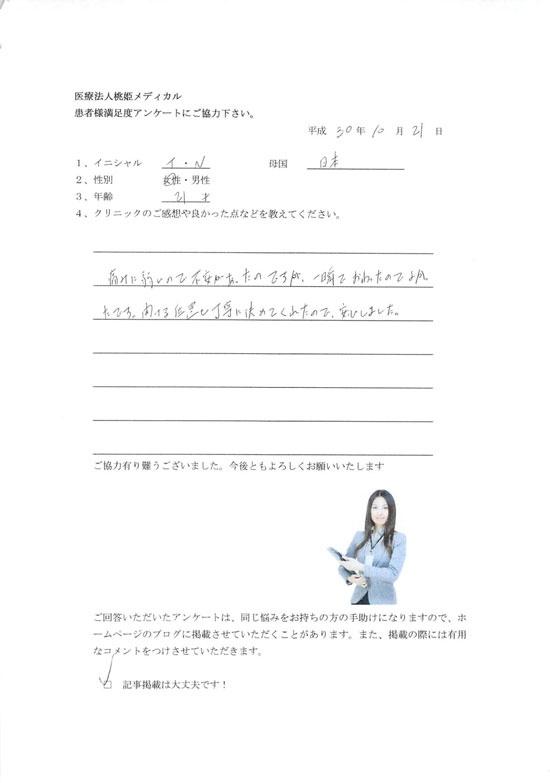 医療法人桃姫メディカル
患者様満足度アンケートにご協力下さい。
平成 30 年 10 月 21 日
1、イニシャル イ・N 母国 日本
2、性別 女性・男性
3、年齢 21 才
4、クリニックのご感想や良かった点などを教えてください。
痛みに弱いので不安があったのですが、一瞬でおわったのでよかっ
たです。開ける位置も丁寧に決めてくれたので、安心しました。
ご協力有り難うございました。今後ともよろしくお願いいたします
ご回答いただいたアンケートは、同じ悩みをお持ちの方の手助けになりますので、ホ
ームページのブログに掲載させていただくことがあります。また、掲載の際には有用
なコメントをつけさせていただきます。
記事掲載は大丈夫です！